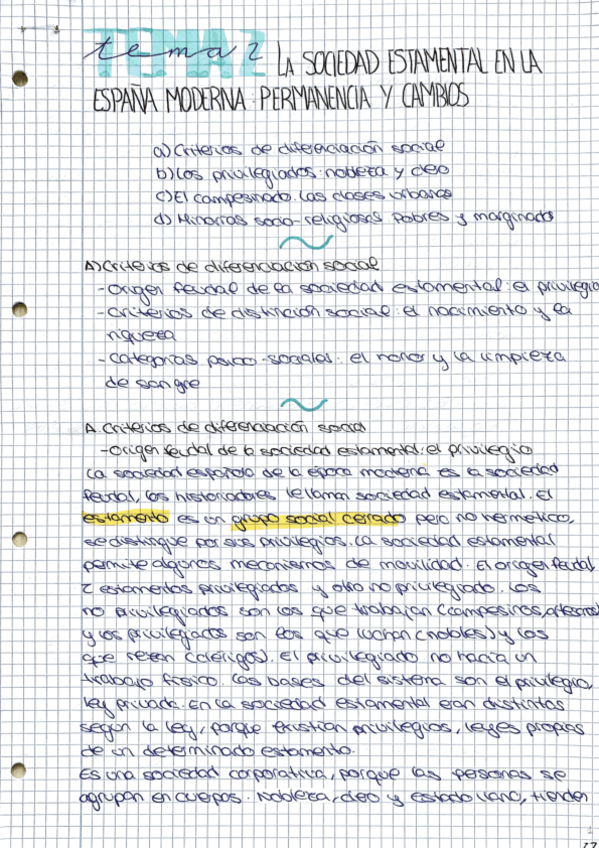 tema 2 LA SOCIEDAD ESTAMENTAL EN LA
ESPAÑA MODERNA: PERMANENCIA Y CAMBIOS
a) Criterios de diferenciación social
b) Los privilegiados: nobleza y clero
c) El campesinado. Las clases urbanas
d) Minorías socio-religiosas. Pobres y marginados
A) Criterios de diferenciación social
- Origen feudal de la sociedad estamental: el privilegio
- Criterios de distinción social: el nacimiento y la
riqueza
- Categorías psico-sociales: el honor y la limpieza
de sangre
A. Criterios de diferenciación social
- Origen feudal de la sociedad estamental: el privilegio
La sociedad española de la época moderna es la sociedad
feudal, los historiadores le llaman sociedad estamental. El
estamento es un grupo social cerrado pero no hermético,
se distingue por sus privilegios. La sociedad estamental
permite algunos mecanismos de movilidad. El origen feudal
2 estamentos privilegiados y otro no privilegiado. Los
no privilegiados son los que trabajan (campesinos, artesanos)
y los privilegiados son los que luchan (nobles) y los
que rezan (clérigos). El privilegiado no hacía un
trabajo físico. Las bases del sistema son el privilegio,
ley privada. En la sociedad estamental eran distintas
según la ley, porque existían privilegios, leyes propias
de un determinado estamento.
Es una sociedad corporativa, porque las personas se
agrupan en cuerpos. Nobleza, clero y estado llano, tienden
1